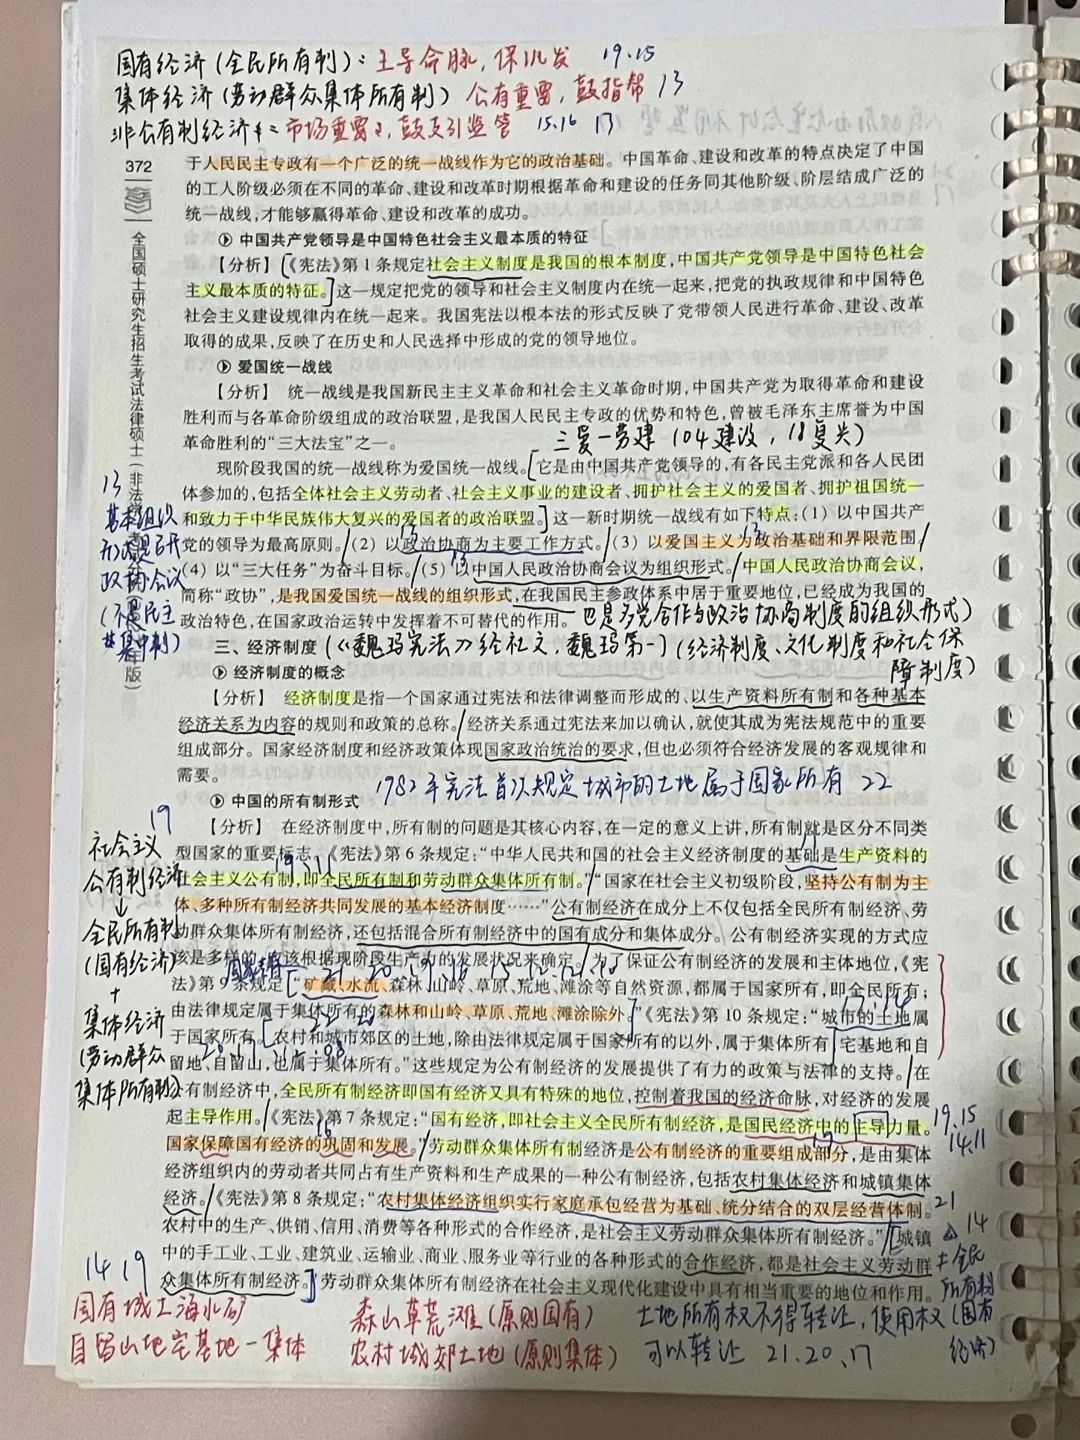 国有经济(全民所有制):主导命脉,保巩发 19.15
集体经济(劳动群众集体所有制) 公有重要,鼓指帮 13
非公有制经济 市场重要,鼓支引监管 15.16 13
372
全国硕士研究生招生考试法律硕士(非法学)
于人民民主专政有一个广泛的统一战线作为它的政治基础。中国革命、建设和改革的特点决定了中国
的工人阶级必须在不同的革命、建设和改革时期根据革命和建设的任务同其他阶级、阶层结成广泛的
统一战线,才能够赢得革命、建设和改革的成功。
中国共产党领导是中国特色社会主义最本质的特征
【分析】《宪法》第1条规定社会主义制度是我国的根本制度,中国共产党领导是中国特色社会
主义最本质的特征。这一规定把党的领导和社会主义制度内在统一起来,把党的执政规律和中国特色
社会主义建设规律内在统一起来。我国宪法以根本法的形式反映了党带领人民进行革命、建设、改革
取得的成果,反映了在历史和人民选择中形成的党的领导地位。
爱国统一战线
【分析】 统一战线是我国新民主主义革命和社会主义革命时期,中国共产党为取得革命和建设
胜利而与各革命阶级组成的政治联盟,是我国人民民主专政的优势和特色,曾被毛泽东主席誉为中国
革命胜利的“三大法宝”之一。
三爱一劳建(04建设,18复兴)
现阶段我国的统一战线称为爱国统一战线。它是由中国共产党领导的,有各民主党派和各人民团
体参加的,包括全体社会主义劳动者、社会主义事业的建设者、拥护社会主义的爱国者、拥护祖国统一
和致力于中华民族伟大复兴的爱国者的政治联盟。这一新时期统一战线有如下特点:(1)以中国共产
党的领导为最高原则。(2)以政治协商为主要工作方式。(3)以爱国主义为政治基础和界限范围。
(4)以“三大任务”为奋斗目标。(5)以中国人民政治协商会议为组织形式。中国人民政治协商会议,
简称“政协”,是我国爱国统一战线的组织形式,在我国民主参政体系中居于重要地位,已经成为我国的
政治特色,在国家政治运转中发挥着不可替代的作用。
也是多党合作与政治协商制度的组织形式)
13
基本组织
形式是召开
政协会议
(不是民主
集中制)
三、经济制度
(《魏玛宪法》经社文,魏玛第一)(经济制度、文化制度和社会保
障制度)
经济制度的概念
【分析】 经济制度是指一个国家通过宪法和法律调整而形成的、以生产资料所有制和各种基本
经济关系为内容的规则和政策的总称。经济关系通过宪法来加以确认,就使其成为宪法规范中的重要
组成部分。国家经济制度和经济政策体现国家政治统治的要求,但也必须符合经济发展的客观规律和
需要。
中国的所有制形式
1982年宪法首次规定城市的土地属于国家所有 22
【分析】 在经济制度中,所有制的问题是其核心内容,在一定的意义上讲,所有制就是区分不同类
型国家的重要标志。《宪法》第6条规定:“中华人民共和国的社会主义经济制度的基础是生产资料的
社会主义公有制,即全民所有制和劳动群众集体所有制。”“国家在社会主义初级阶段,坚持公有制为主
体、多种所有制经济共同发展的基本经济制度……”公有制经济在成分上不仅包括全民所有制经济、劳
动群众集体所有制经济,还包括混合所有制经济中的国有成分和集体成分。公有制经济实现的方式应
该是多样的,应该根据现阶段生产力的发展状况来确定。为了保证公有制经济的发展和主体地位,《宪
法》第9条规定:“矿藏、水流、森林、山岭、草原、荒地、滩涂等自然资源,都属于国家所有,即全民所有;
由法律规定属于集体所有的森林和山岭、草原、荒地、滩涂除外。”《宪法》第10条规定:“城市的土地属
于国家所有。农村和城市郊区的土地,除由法律规定属于国家所有的以外,属于集体所有;宅基地和自
留地、自留山,也属于集体所有。”这些规定为公有制经济的发展提供了有力的政策与法律的支持。在
公有制经济中,全民所有制经济即国有经济又具有特殊的地位,控制着我国的经济命脉,对经济的发展
起主导作用。《宪法》第7条规定:“国有经济,即社会主义全民所有制经济,是国民经济中的主导力量。
国家保障国有经济的巩固和发展。”劳动群众集体所有制经济是公有制经济的重要组成部分,是由集体
经济组织内的劳动者共同占有生产资料和生产成果的一种公有制经济,包括农村集体经济和城镇集体
经济。《宪法》第8条规定:“农村集体经济组织实行家庭承包经营为基础、统分结合的双层经营体制。
农村中的生产、供销、信用、消费等各种形式的合作经济,是社会主义劳动群众集体所有制经济。”“城镇
中的手工业、工业、建筑业、运输业、商业、服务业等行业的各种形式的合作经济,都是社会主义劳动群
众集体所有制经济。”劳动群众集体所有制经济在社会主义现代化建设中具有相当重要的地位和作用。
19
社会主义
公有制经济
↓
全民所有制
(国有经济)
+
集体经济
(劳动群众
集体所有制)
19.15
14.11
21
14
≠全民
所有制
(国有
经济)
14 19
国有城土海水矿
自留山地宅基地-集体
森山草荒滩(原则国有)
农村城郊土地(原则集体)
土地所有权不得转让,使用权
可以转让 21.20.17